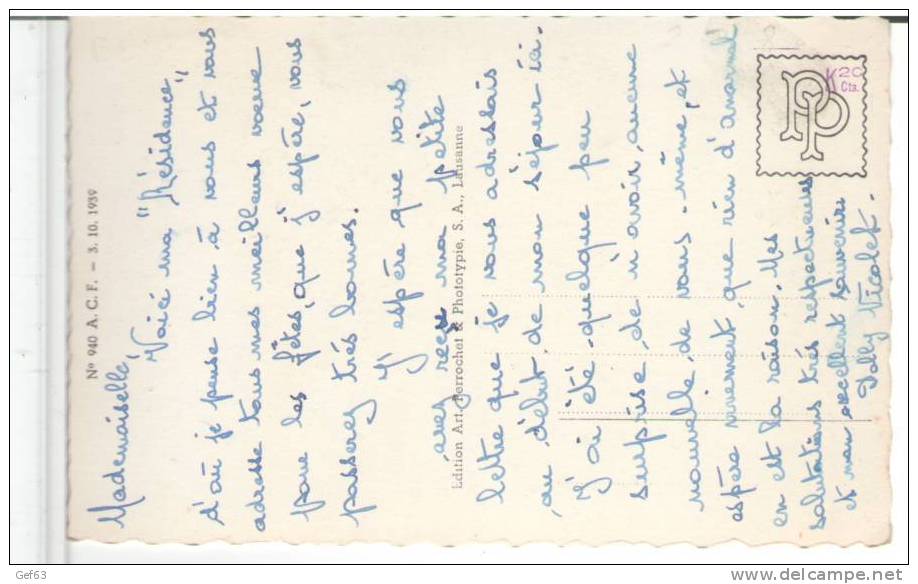 Nº 940 A. C. F. — 3. 10. 1939
Mademoiselle,
Voici ma "Résidence"
d'où je pense bien à vous et vous
adresse tous mes meilleurs voeux
pour les fêtes, que j'espère, vous
passerez très bonnes.
J'espère que vous
avez reçu ma petite
Edition Art. Perrochet & Phototypie, S. A., Lausanne
lettre que je vous adressais
au début de mon séjour ici.
J'ai été quelque peu
surprise de n'avoir aucune
nouvelle de vous-même, et
espère vivement, que rien d'anormal
en est la raison. Mes
salutations très respectueuses
et mon excellent souvenir.
Nicolet.
PP
K 20
Cts.
Gef63
www.delcampe.net